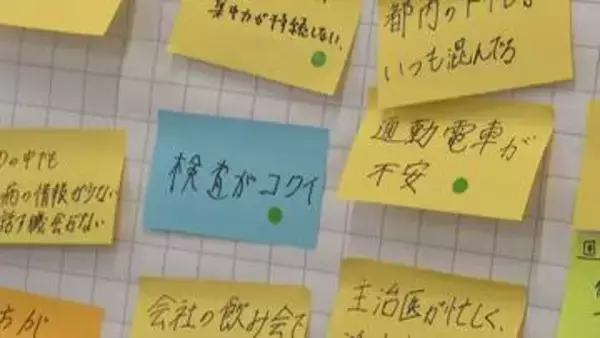 集中力が持続しない。
都内のトイレも
いつも混んでる
の中でも
病の情報が少ない
話す機会がない
検査がコワイ
通動電車が
不安
会社の飲み会で
主治医が忙しく、
ちが